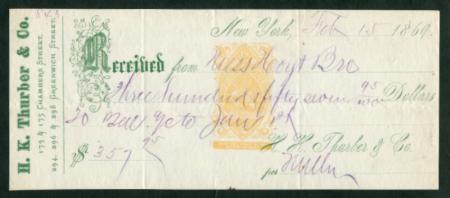 H. K. Thurber & Co.
173 & 175 CHAMBERS STREET,
294, 296 & 298 GREENWICH STREET.
New York, Feb 15 1869.
Received from Hoyt Bro
Three hundred fifty seven 95/100 Dollars
to June 1st
$ 357 95
H. K. Thurber & Co.
per